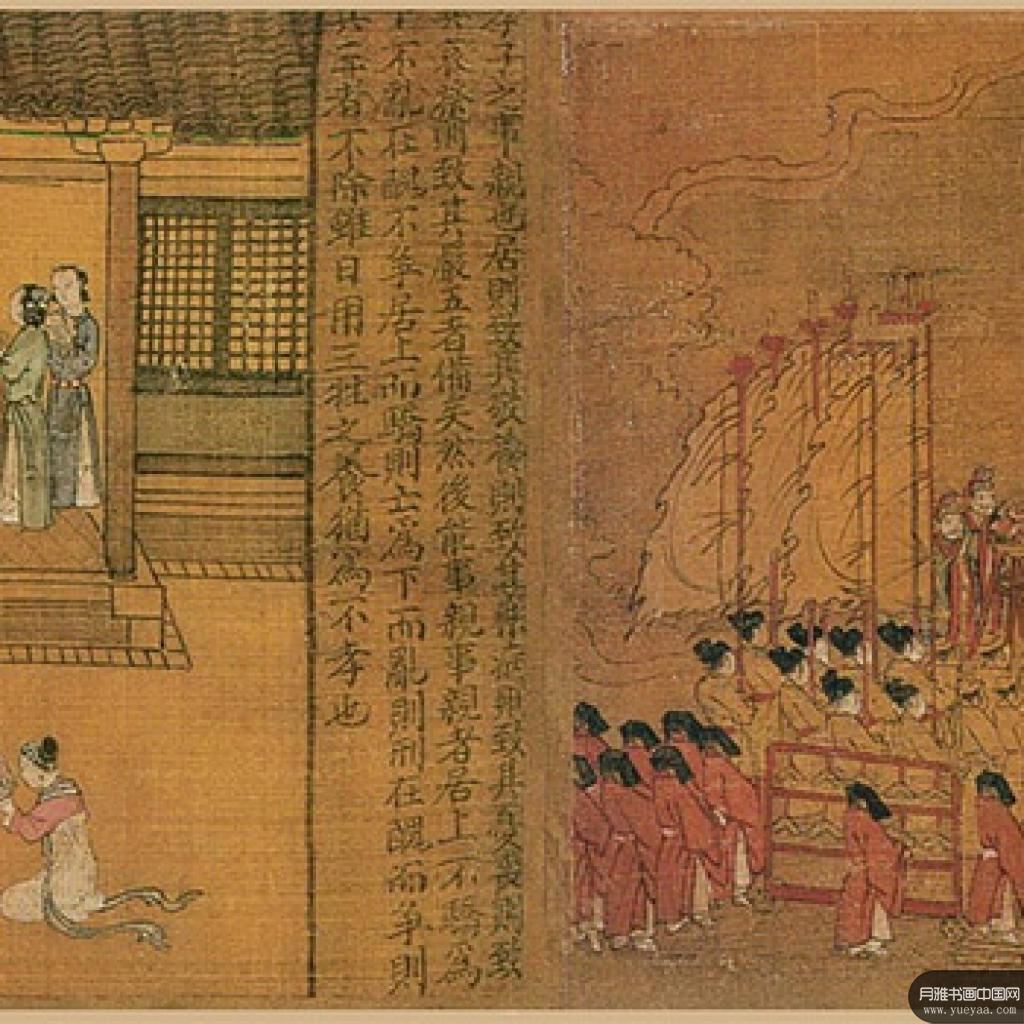 孝子之事親也居則致其敬養則致其樂病則致其憂喪則致
其哀祭則致其嚴五者備矣然後能事親事親者居上不驕為
下不亂在醜不爭居上而驕則亡為下而亂則刑在醜而爭則
兵三者不除雖日用三牲之養猶為不孝也
月雅书画中国网
www.yueyaa.com